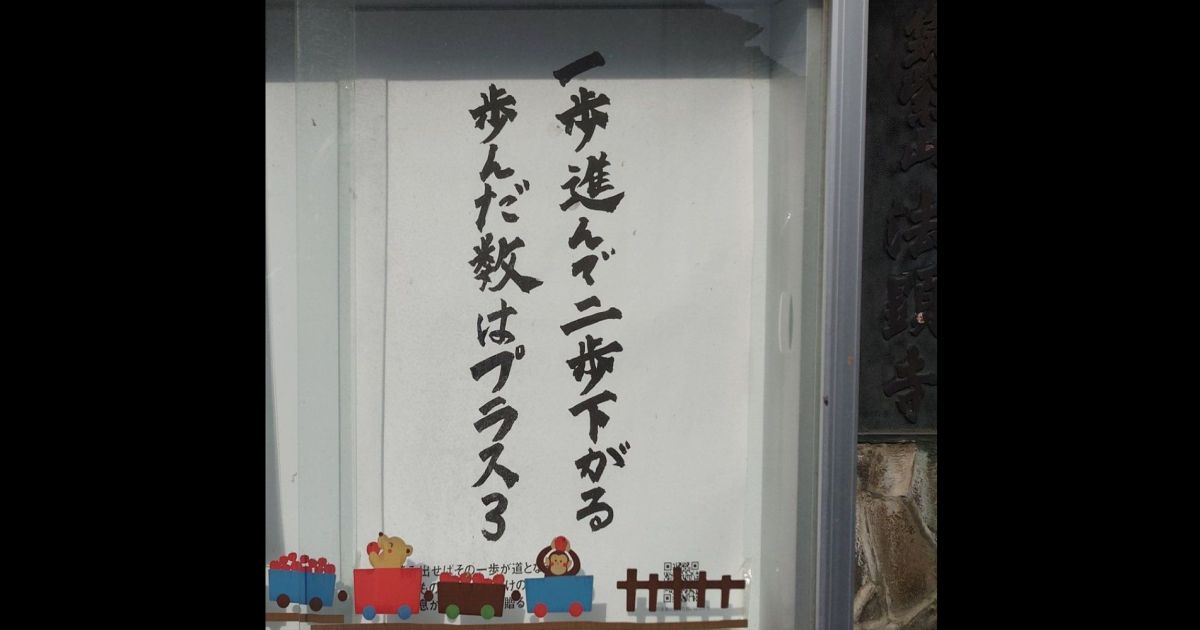 一歩進んで二歩下がる
歩んだ数はプラス3
出せばその一歩が道とな
法顕寺